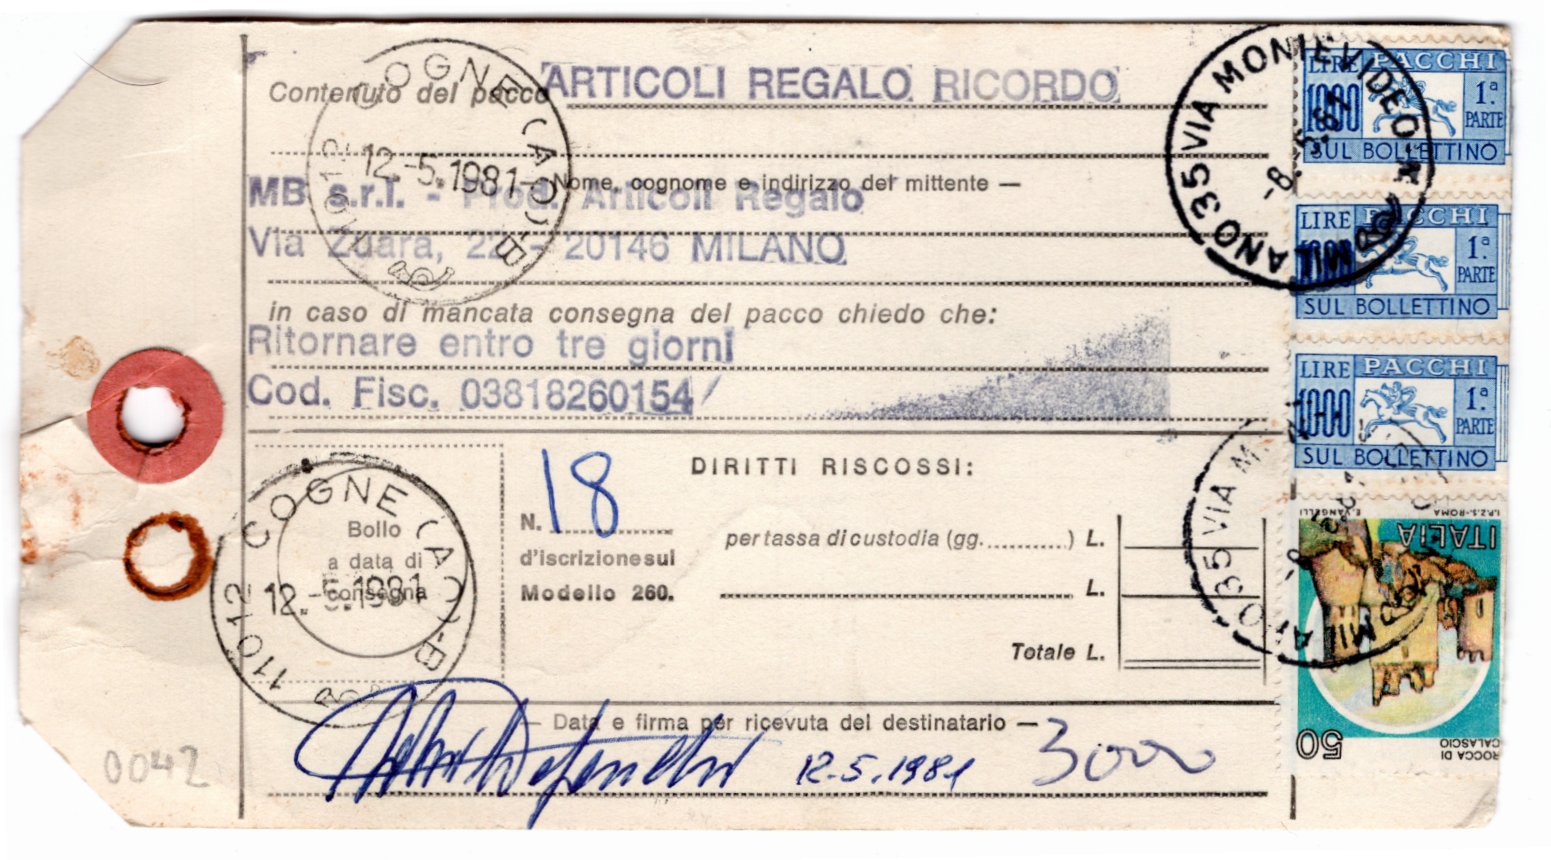 Contenuto del pacco ARTICOLI REGALO RICORDO
COGNE (AO)-B
11012
12.-5.1981
Nome, cognome e indirizzo del mittente —
MB s.r.l. - Prod. Articoli Regalo
Via Zuara, 22 - 20146 MILANO
in caso di mancata consegna del pacco chiedo che:
Ritornare entro tre giorni
Cod. Fisc. 03818260154/
DIRITTI RISCOSSI:
N. 18
d'iscrizione sul
Modello 260.
per tassa di custodia (gg. ) L.
L.
Totale L.
Bollo
a data di
consegna
11012 COGNE (AO)-B
12.-5.1981
— Data e firma per ricevuta del destinatario —
12-5.1981
3000
0042
MILANO 35 VIA MONTEVIDEO-K
-8.-5.81
LIRE PACCHI
1000 1ª
PARTE
SUL BOLLETTINO
LIRE PACCHI
1000 1ª
PARTE
SUL BOLLETTINO
LIRE PACCHI
1000 1ª
PARTE
SUL BOLLETTINO
MILANO 35 VIA M
I.P.Z.S.-ROMA E. VANGELLI
ITALIA
50
ROCCA DI
CALASCIO